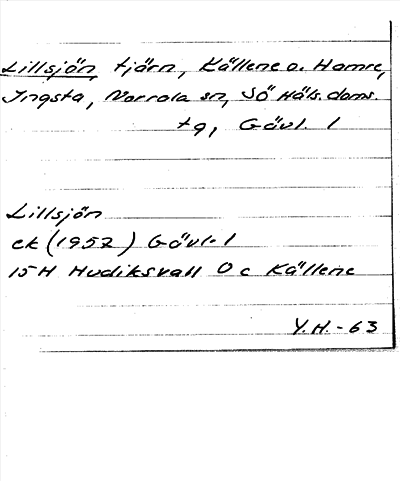 Lillsjön, tjärn, Källene o. Hamre,
Ingsta, Norrala sn, SÖ Häls. doms.
tg, Gävl. l
Lillsjön
ek (1952) Gävl. l
15H Hudiksvall 0 c Källene
Y.H.-63